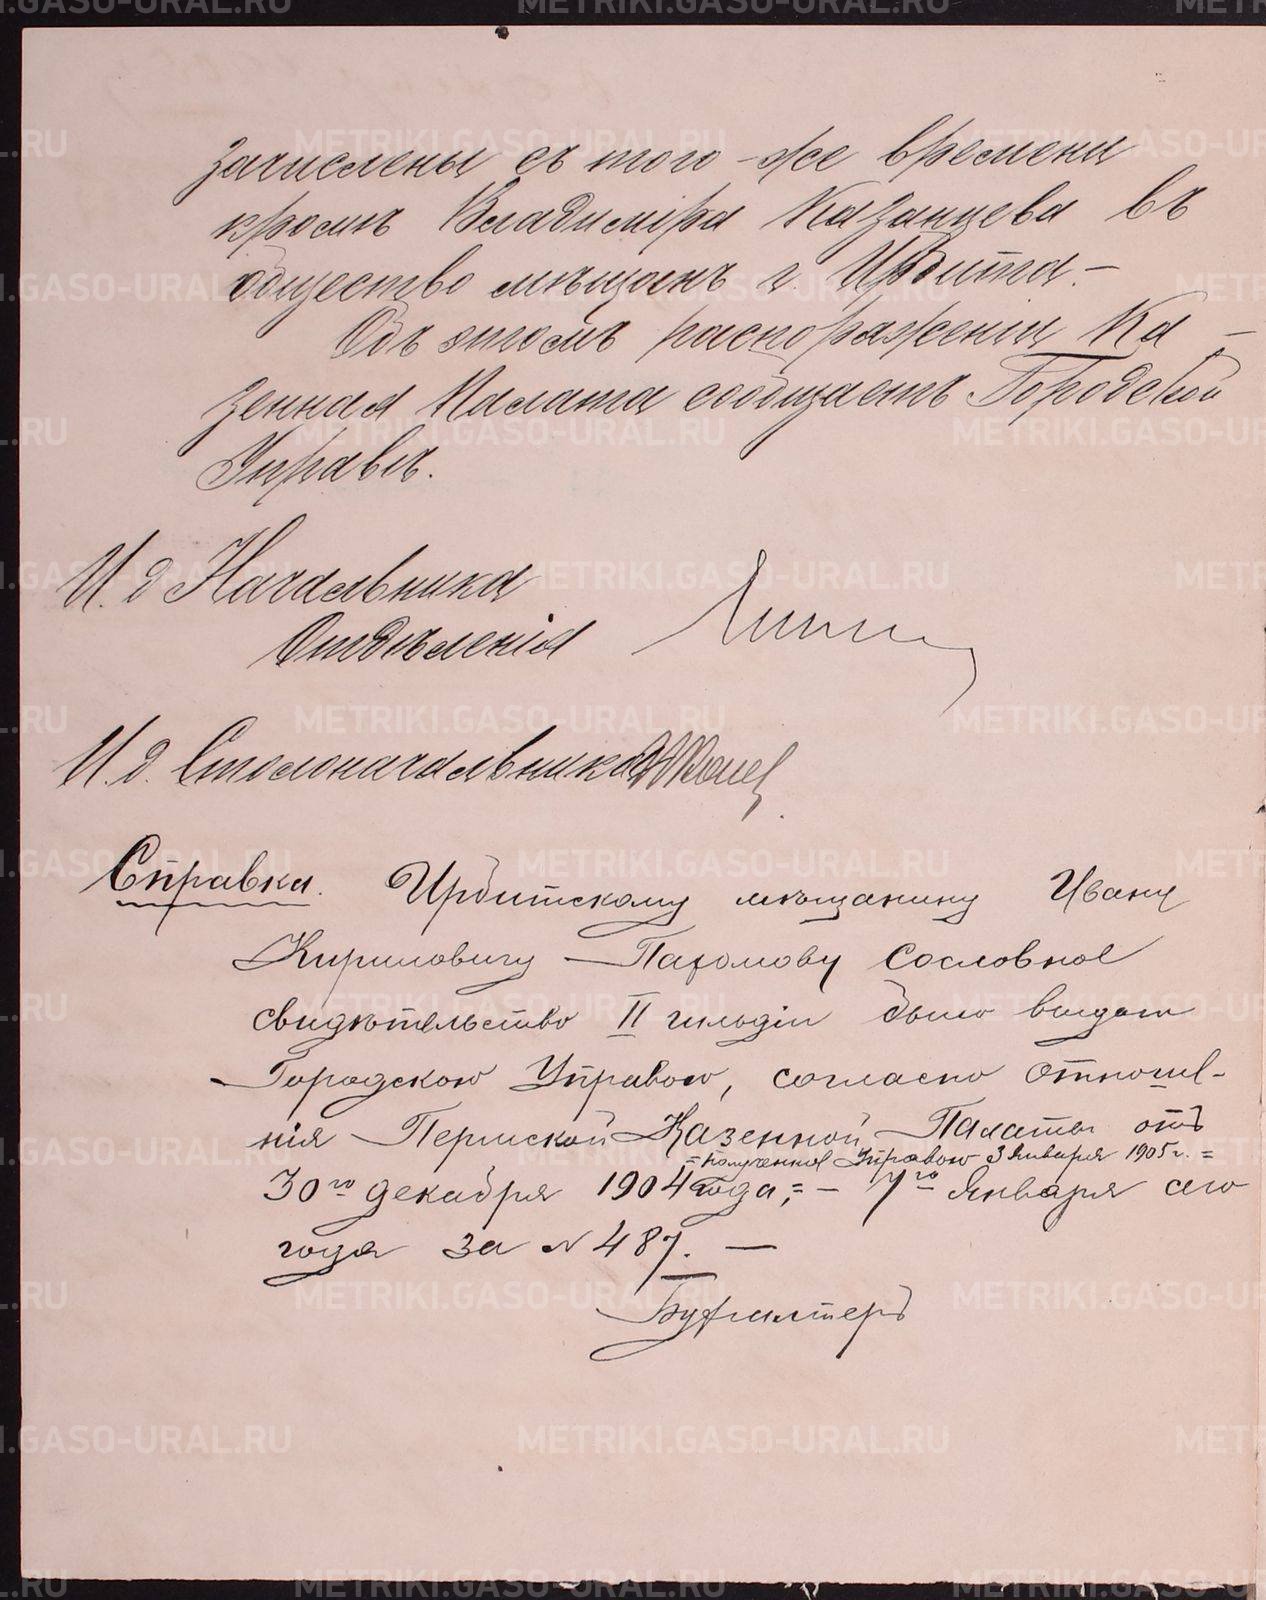 зачислены съ того-же времени
кромѣ Владиміра Казанцева въ
общество мѣщанъ г. Ирбита.-
Объ этомъ распоряженіи Ка-
зенная Палата сообщаетъ Городской
Управѣ.
И. д. Начальника
Отдѣленія
И. д. Столоначальника
Справка. Ирбитскому мѣщанину Ивану
Кириловичу Пахомову сословное
свидѣтельство II гильдіи было выдано
Городскою Управою, согласно отноше-
нія Пермской Казенной Палаты отъ
=полученное Управою 3 января 1905 г.=
30го декабря 1904 года,= - 7го Января сего
года за № 487. —
Бухгалтеръ
METRIKI.GASO-URAL.RU